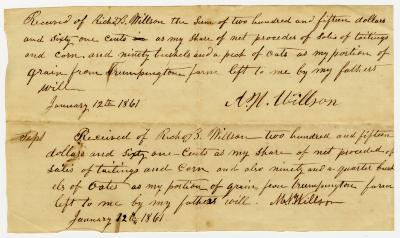 Received of Richd B. Willson the Sum of two hundred and fifteen dollars
and Sixty one Cents as my share of net procedes of Sales of tailings
and Corn, and ninety bushels and a peck of Oats as my portion of
grain from Trumpington farm left to me by my fathers
will
January 12th 1861 A. M. Willson
Received of Richd B. Willson two hundred and fifteen
dollars and Sixty one Cents as my share of net proceded of
Sales of tailings and Corn and also ninety and a quarter bush
els of Oates as my portion of grain from trumpington farm
left to me by my fathers will. Willson
January 12th 1861